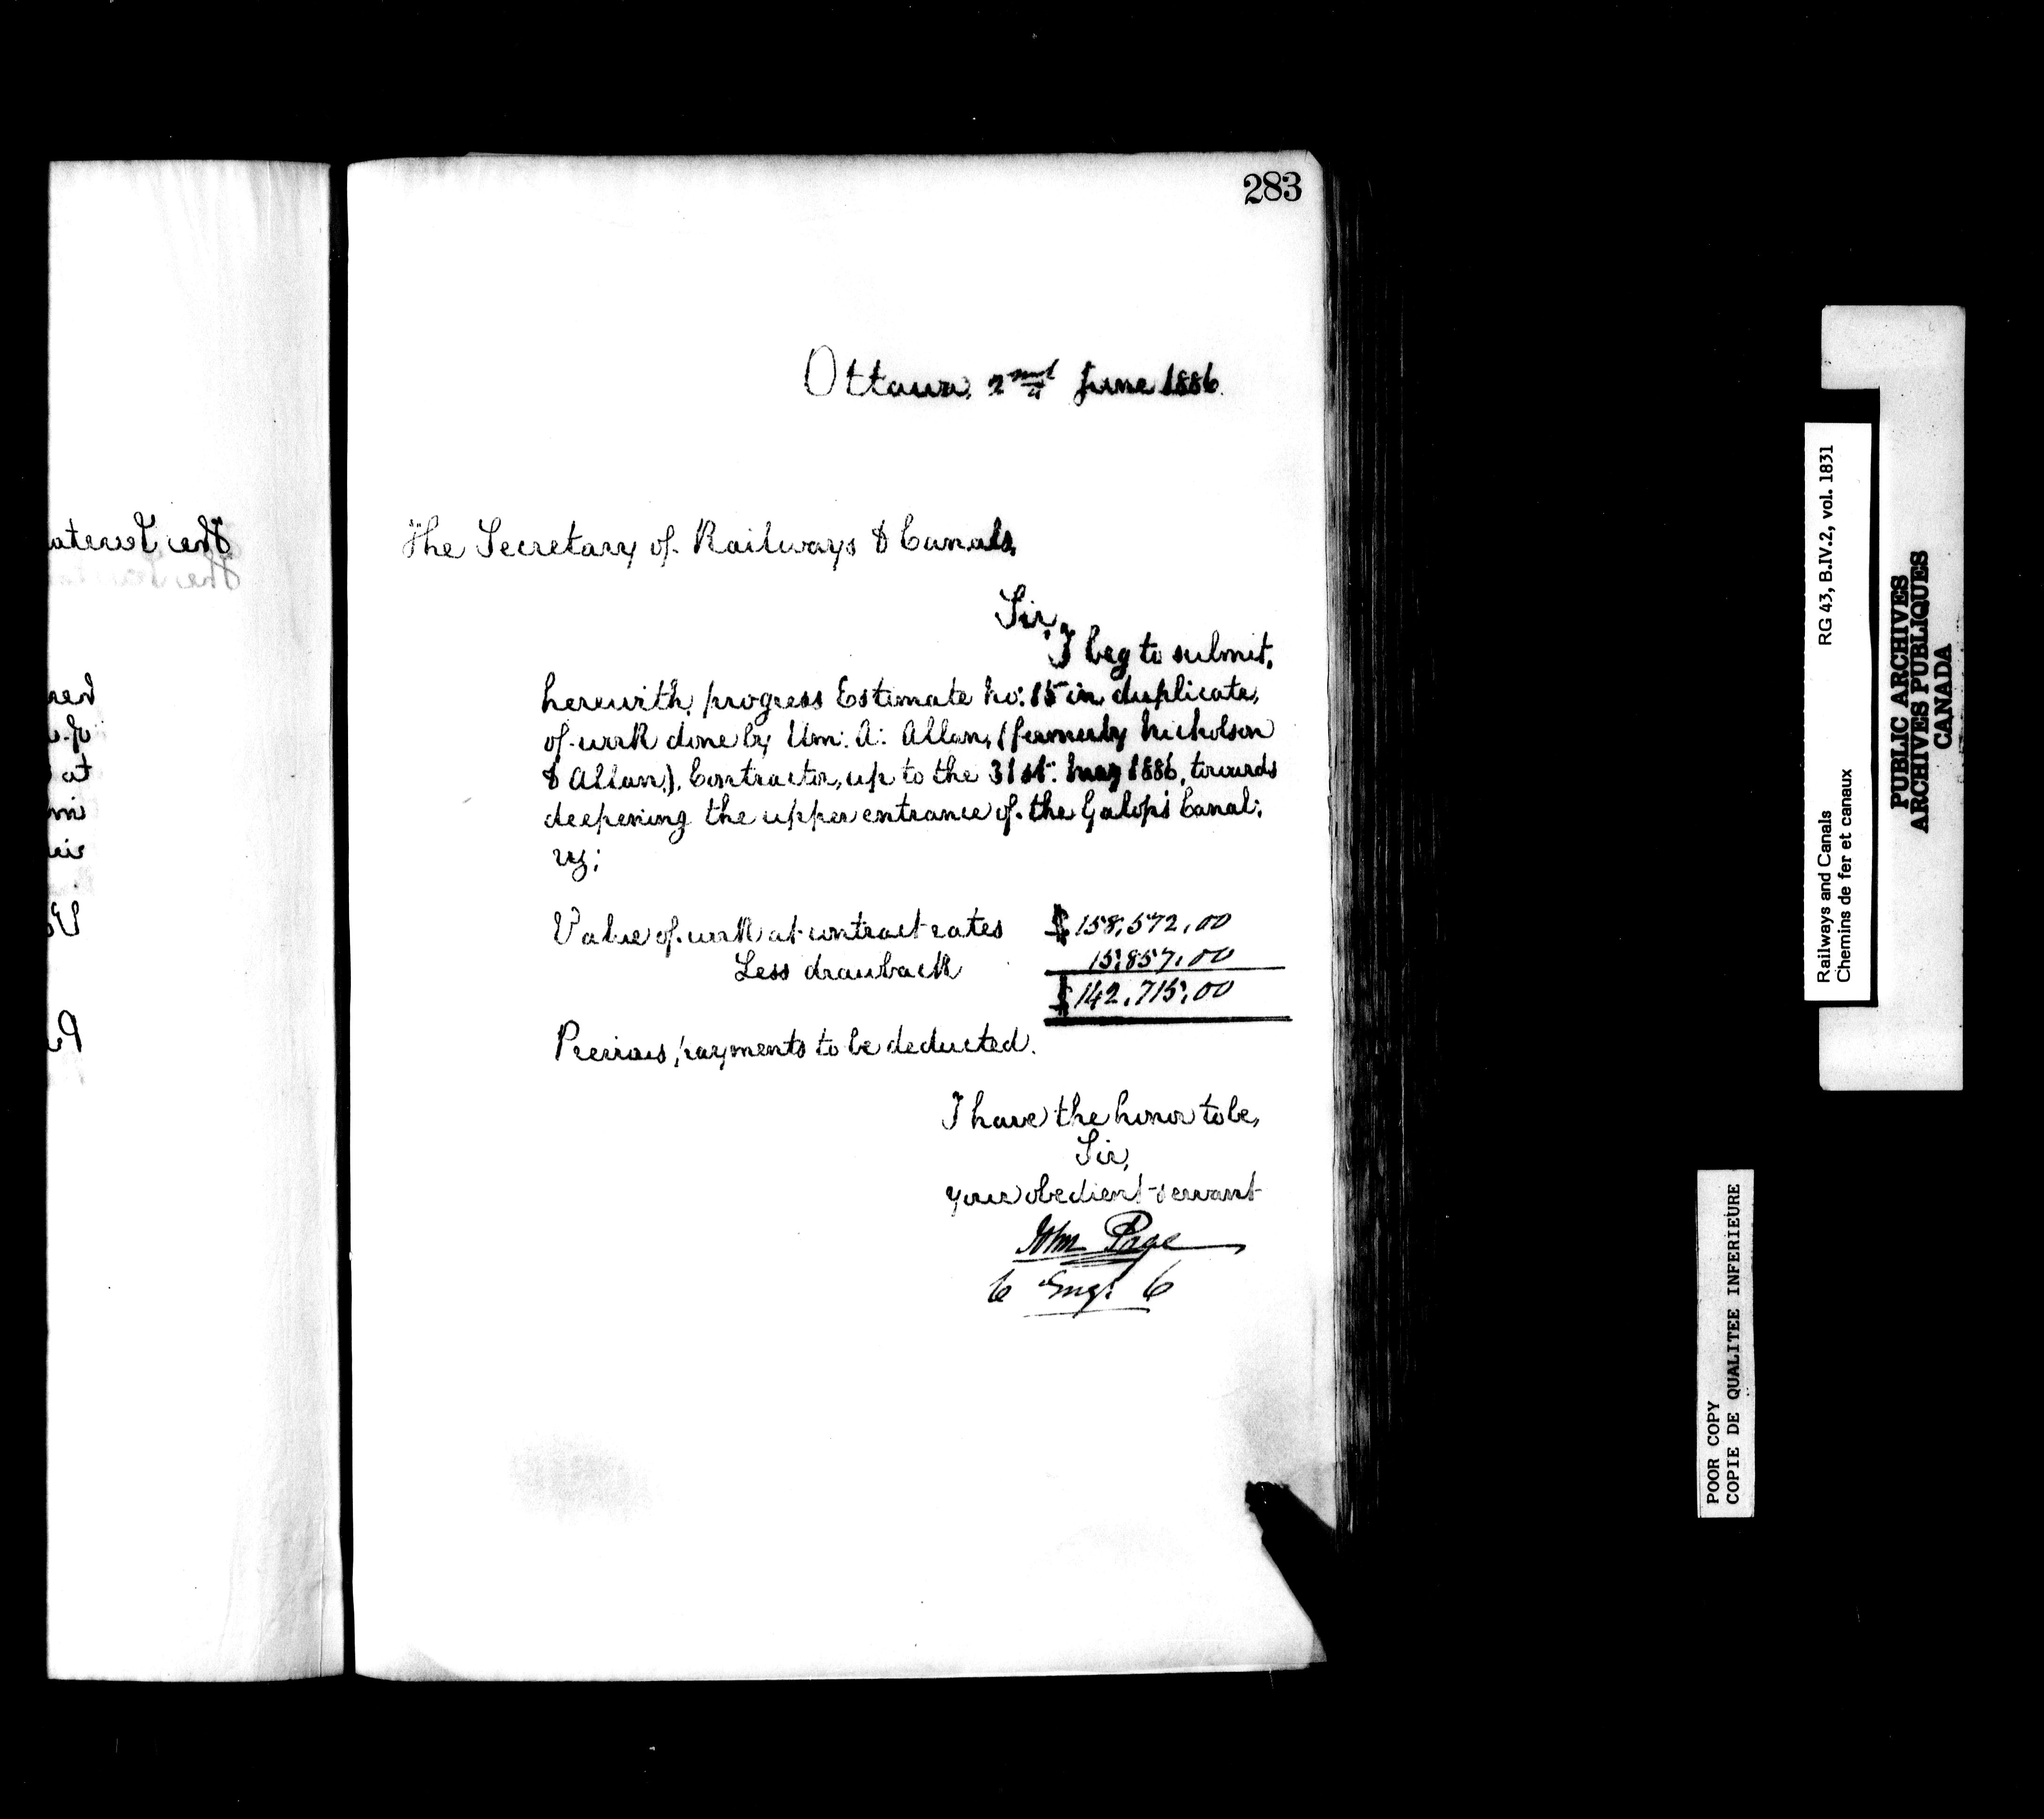 283
Ottawa, 2nd June 1886.
The Secretary of Railways & Canals,
Sir,
I beg to submit,
herewith, progress Estimate No: 15 in duplicate,
of work done by Wm: A: Allan, (formerly Nicholson
& Allan), Contractor, up to the 31st: May 1886, towards
deepening the upper entrance of the Galops Canal:
viz:
Value of work at contract rates $158,572.00
Less drawback 15,857.00
$142,715.00
Previous payments to be deducted.
I have the honor to be,
Sir,
your obedient servant
John Page
C Engr. C
Railways and Canals RG 43, B.IV.2, vol. 1831
Chemins de fer et canaux
PUBLIC ARCHIVES
ARCHIVES PUBLIQUES
CANADA
POOR COPY
COPIE DE QUALITEE INFERIEURE